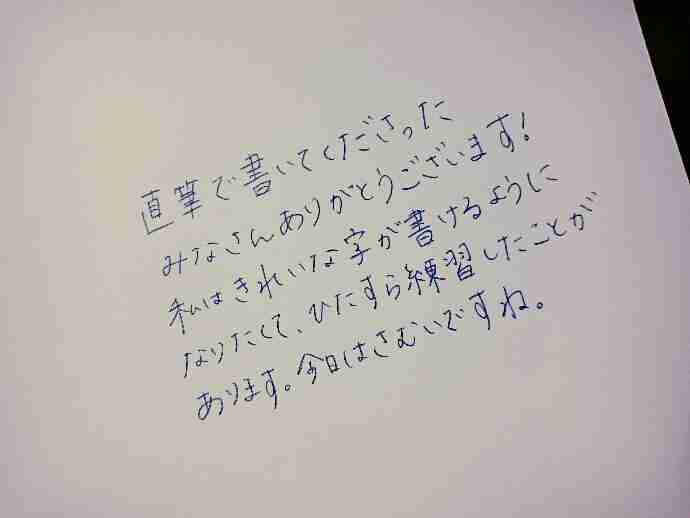 直筆で書いてくださった
みなさんありがとうございます!
私はきれいな字が書けるように
なりたくて、ひたすら練習したことが
あります。今日はさむいですね。